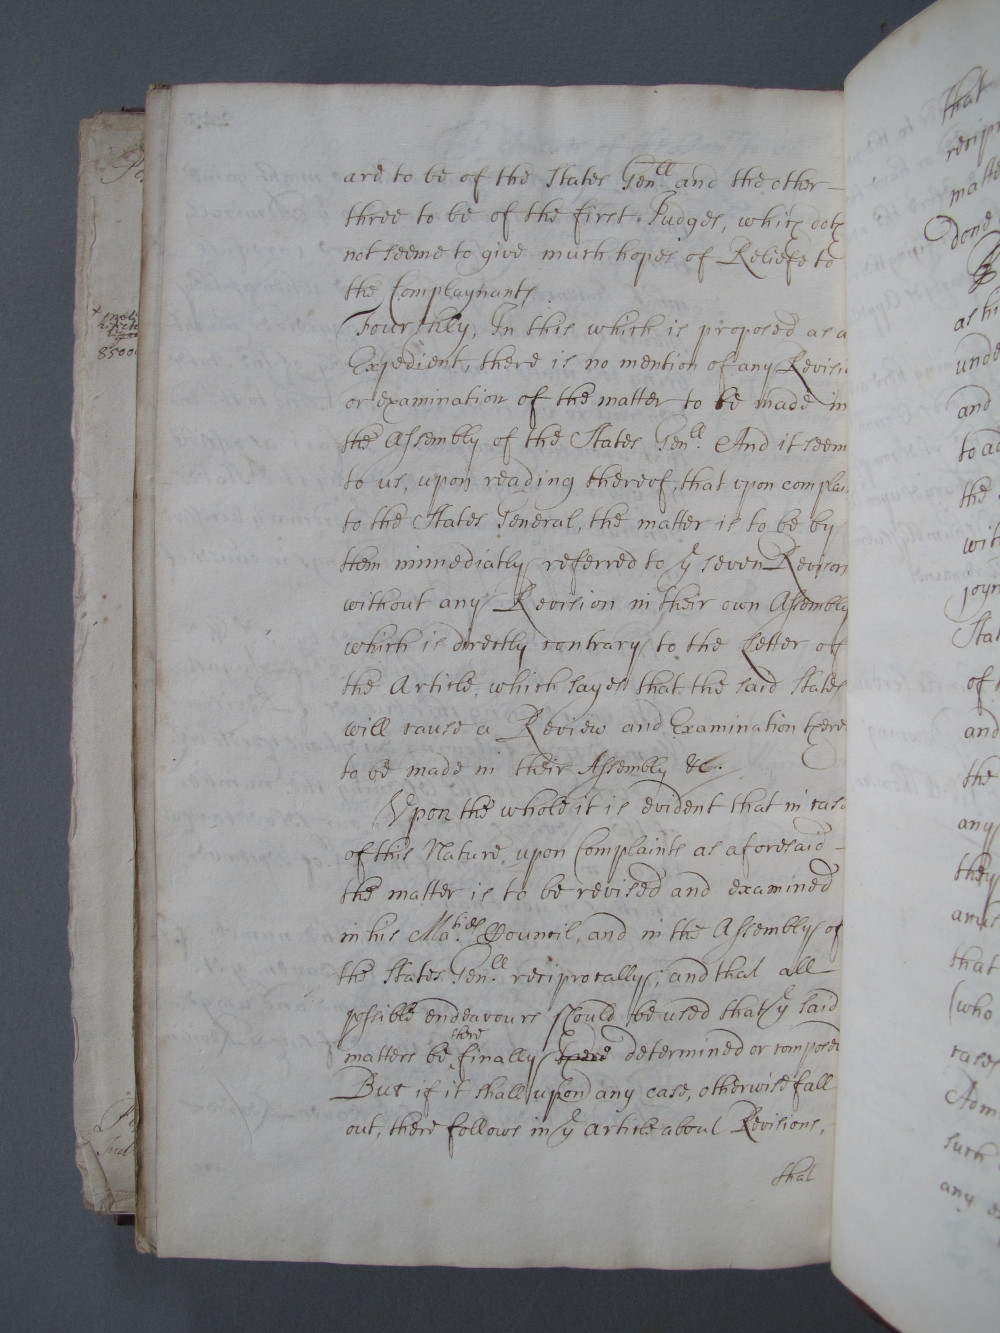 are to be of the States Genll. and the other
three to be of the first Judges, which doth
not seeme to give much hopes of Reliefe to
the Complaynants.
Fourthly, In this which is proposed as a
Expedient, there is no mention of any Revisi
or examination of the matter to be made in
the Assembly of the States Genll. And it seem
to us, upon reading thereof, that upon complai
to the States General, the matter is to be by
them immediatly referred to ye seven Revisors
without any Revision in their own Assembly
which is directly contrary to the Letter of
the Article, which sayes that the said States
will cause a Review and Examination there
to be made in their Assembly &c.
Upon the whole it is evident that in case
of this Nature, upon Complaints as aforesaid
the matter is to be revised and examined
in his Maties. Council, and in the Assembly of
the States Genll. reciprocally; and that all
possible endeavours should be used that ye said
matters be there finally there determined or composed
But if it shall upon any case, otherwise fall
out, there follows in ye Article about Revisions,
shal
that
recipr
matte
done
as hi
unde
and
to ad
the
wit
joyn
Stat
of
and
the
any
they
that
(who
cases
Adm
such
any
8500